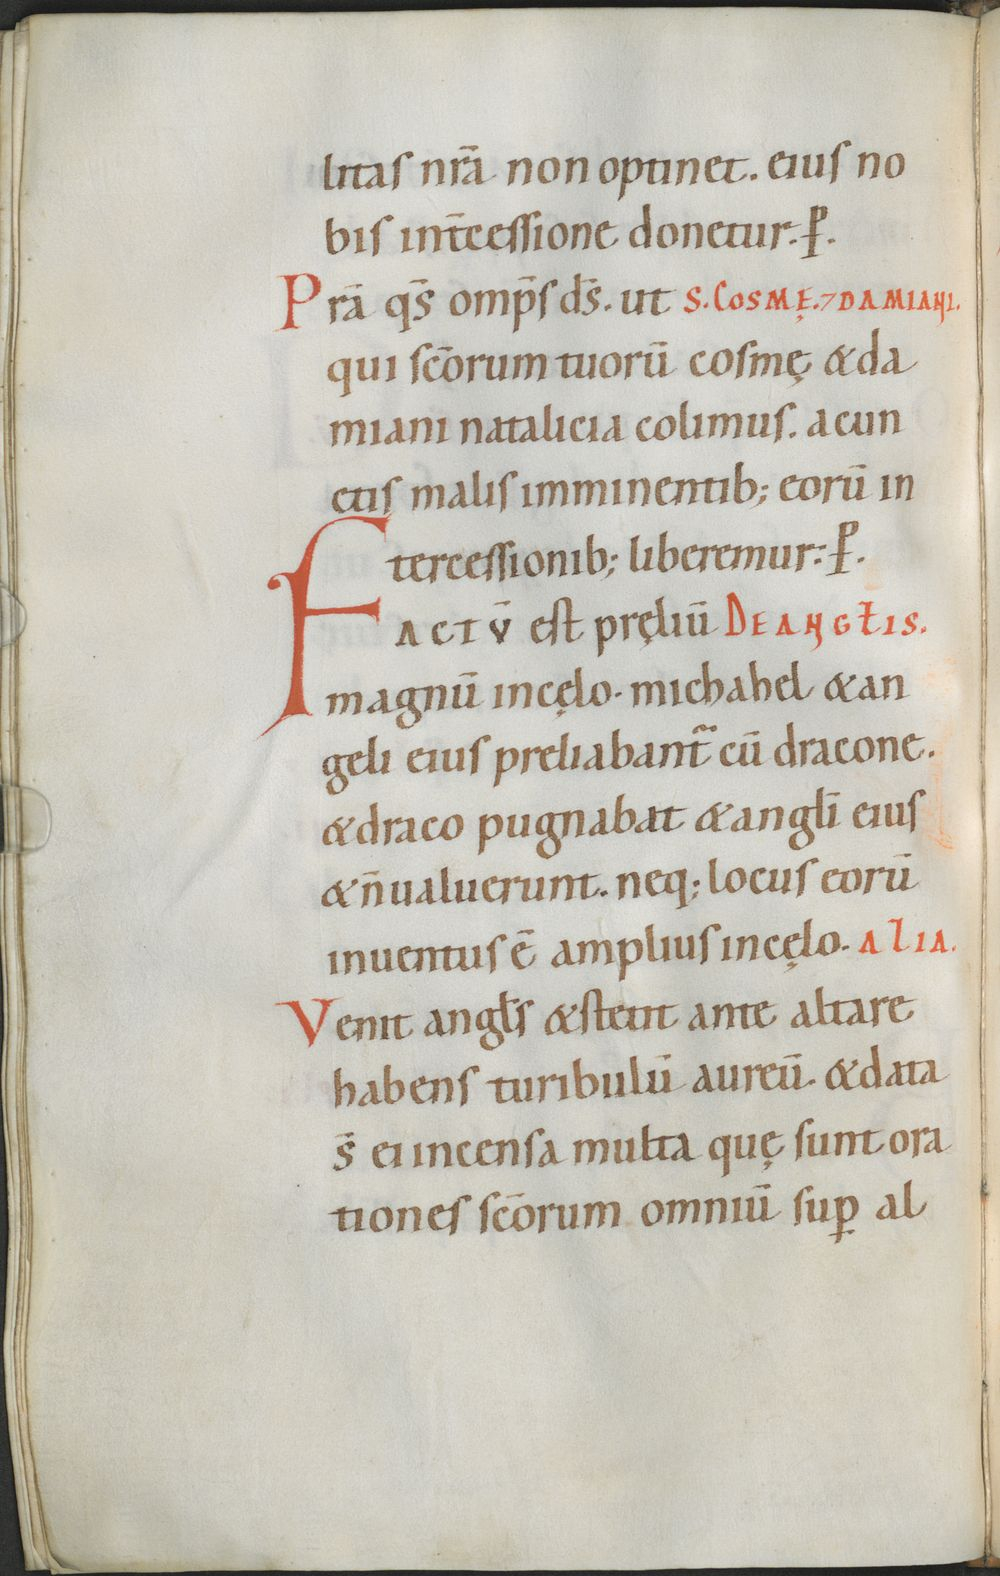 litas nr̄a non optinet. eius no
bis int̄cessione donetur. p̄.
Pr̄a q̄s omp̄s d̄s. ut S. COSMĘ. ⁊ DAMIANI.
qui sc̄orum tuorū cosmę & da
miani natalicia colimus. a cun
ctis malis imminentib; eorū in
tercessionib; liberemur: p̄.
FACTV̄ est pręliū DE ANGŁIS.
magnū in cęlo. michahel & an
geli eius preliabant᷑ cū dracone.
& draco pugnabat & angli̅ eius
& n̄ ualuerunt. neq; locus eorū
inuentus ē amplius in cęlo. ALIA.
Venit angłs & stetit ante altare
habens turibulū aureū. & data
s̄ ei incensa multa quę sunt ora
tiones sc̄orum omniū sup̱ al